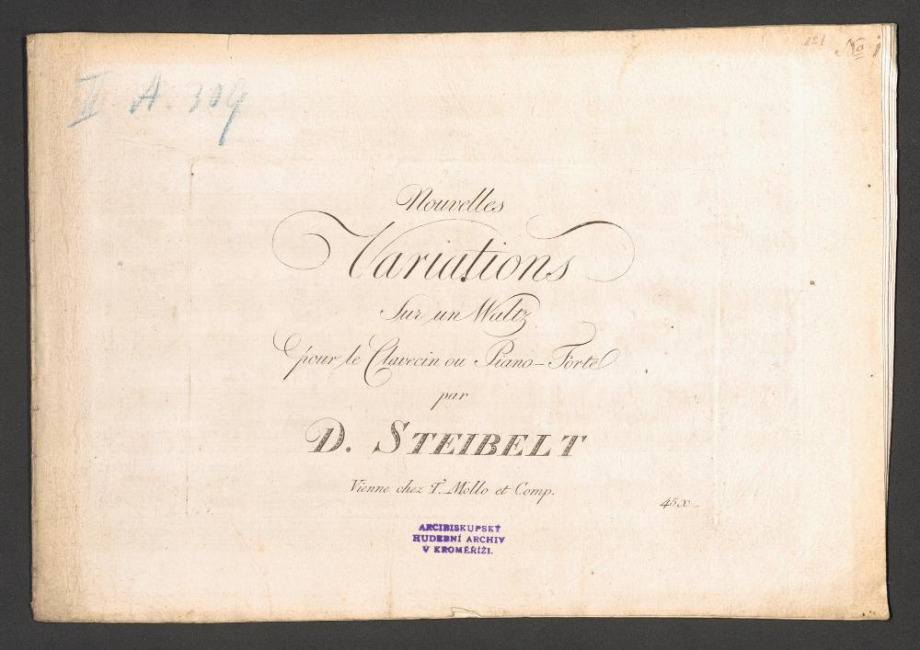 121 No 1
II A. 309
Nouvelles
Variations
Sur un Waltz
pour le Clavecin ou Piano-Forte
par
D. STEIBELT
Vienne chez T. Mollo et Comp.
45 x
ARCIBISKUPSKÝ
HUDEBNÍ ARCHIV
V KROMĚŘÍŽI.